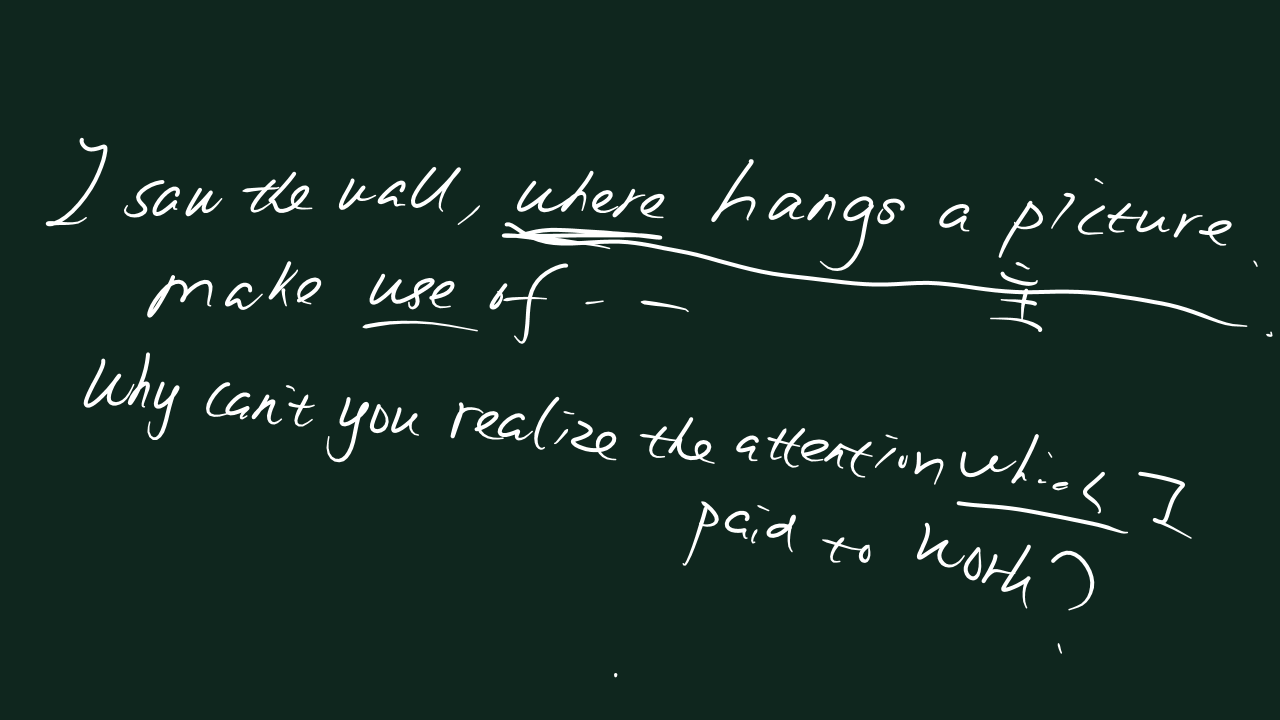 I saw the wall, where hangs a picture.
主
make use of - -
Why can't you realize the attention which I
paid to work?